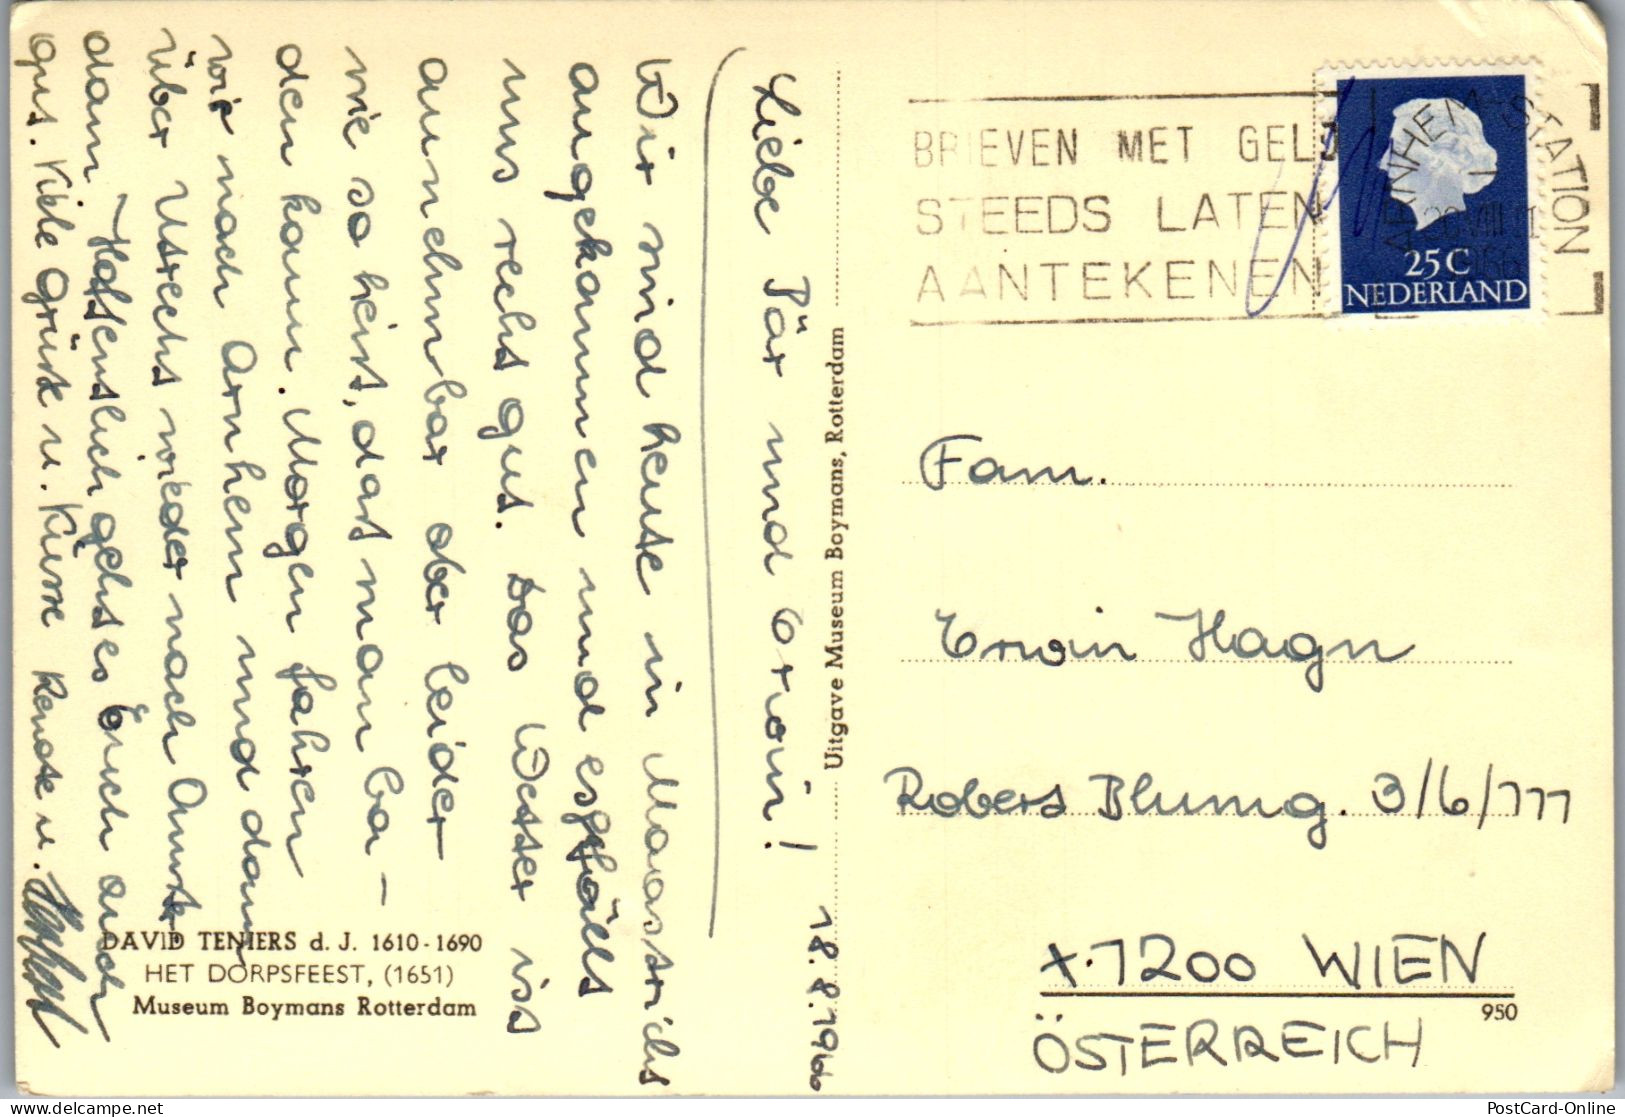 18.8.1966
Liebe Pär und Erwin!
Wir sind heute in Maastricht
angekommen und es gefällt
uns recht gut. Das Wetter ist
annehmbar aber leider
nie so heiß, das man ba-
den kann. Morgen fahren
wir nach Arnhem und dann
über Utrecht wieder nach Amster-
dam. Hoffentlich geht es Euch auch
gut. Viele Grüsse u. Küsse Renate u.
DAVID TENIERS d. J. 1610-1690
HET DORPSFEEST, (1651)
Museum Boymans Rotterdam
Uitgave Museum Boymans, Rotterdam
BRIEVEN MET GELD
STEEDS LATEN
AANTEKENEN
ARNHEM-STATION
1966
25 C
NEDERLAND
Fam.
Erwin Hagn
Robert Blumg. 3/6/111
1200 WIEN
950
ÖSTERREICH
PostCard-Online